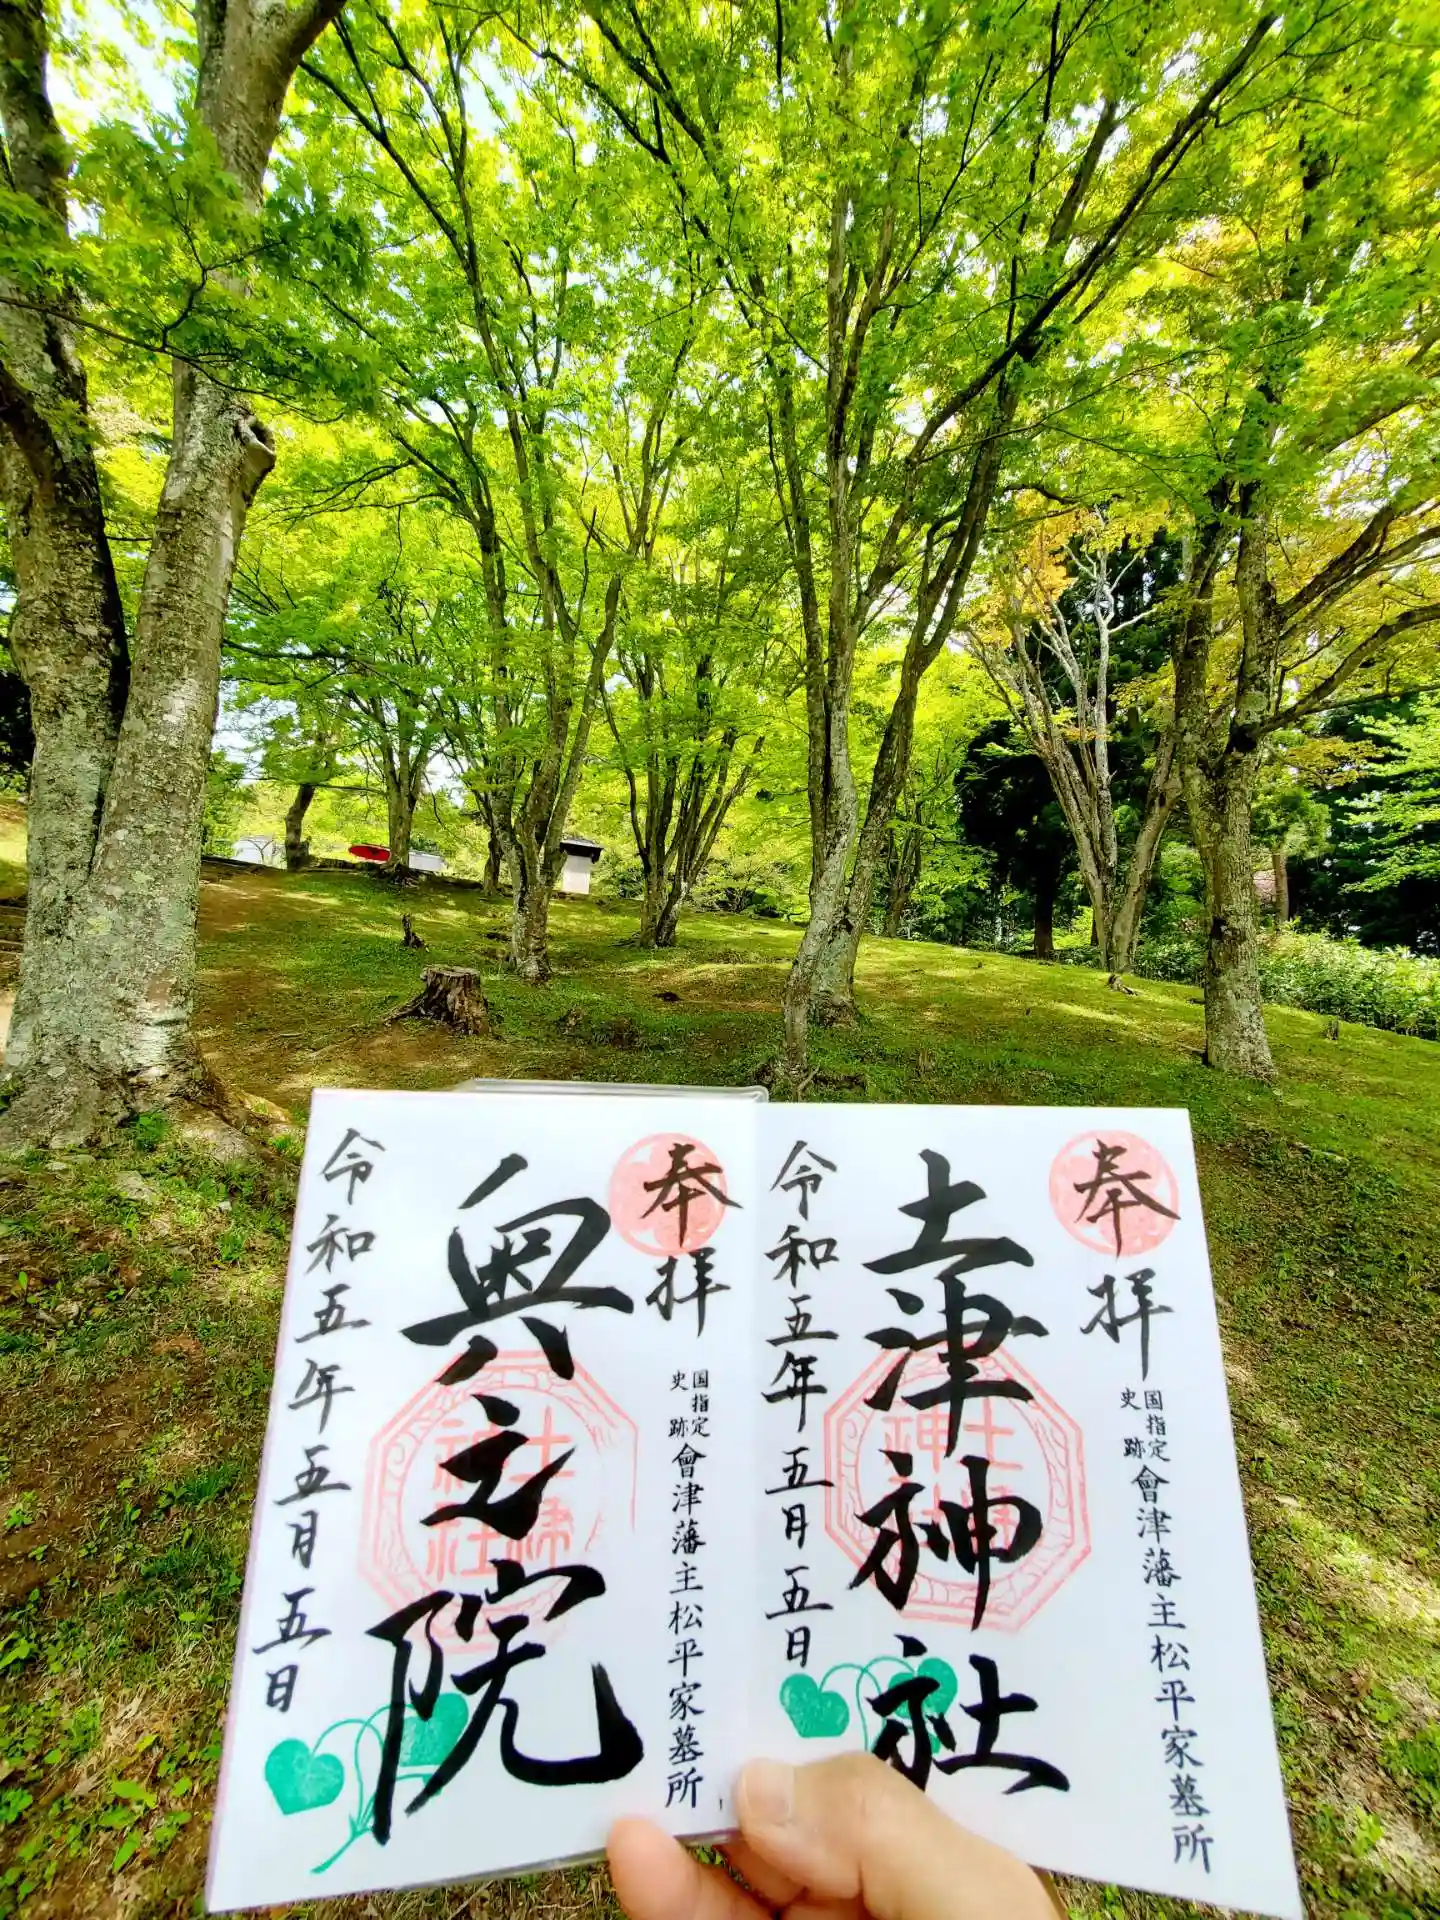 奉拝
国指定
史跡
會津藩主松平家墓所
土津神社
令和五年五月五日
奉拝
国指定
史跡
會津藩主松平家墓所
奥之院
令和五年五月五日
土津
神社
土津
神社